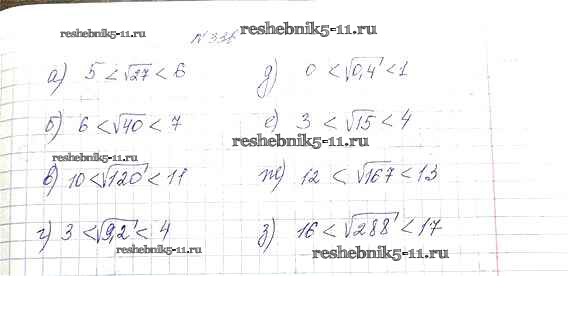 reshebnik5-11.ru
reshebnik5-11.ru
№ 338
а) 5 < √27 < 6
д) 0 < √0,4 < 1
б) 6 < √40 < 7
е) 3 < √15 < 4
reshebnik5-11.ru
reshebnik5-11.ru
в) 10 < √120 < 11
ж) 12 < √167 < 13
г) 3 < √9,2 < 4
з) 16 < √288 < 17
reshebnik5-11.ru
reshebnik5-11.ru